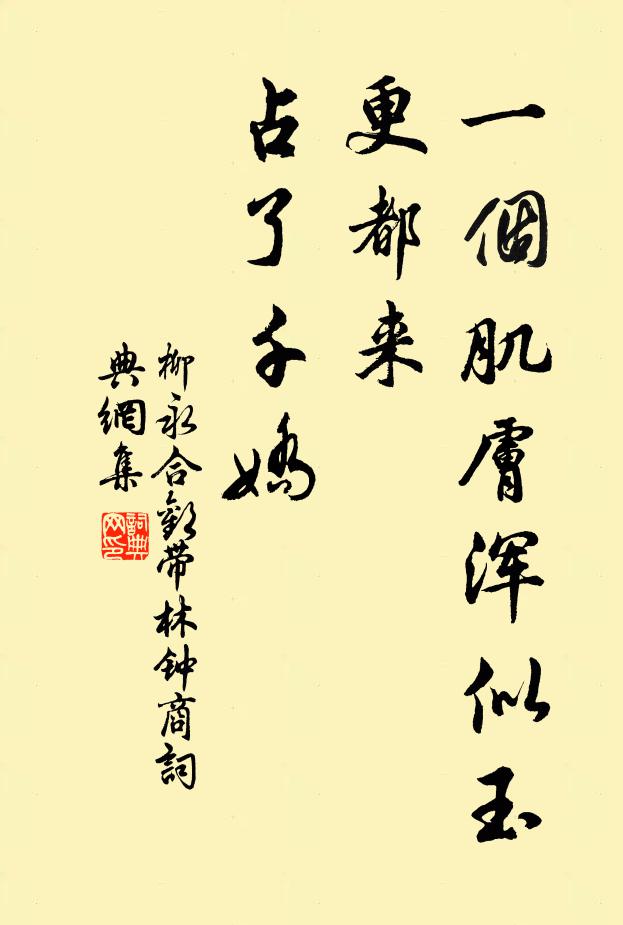 一個肌膚渾似玉
更都来
占了千嬌
柳永合歡带林钟商詞
典網集
詞典网印